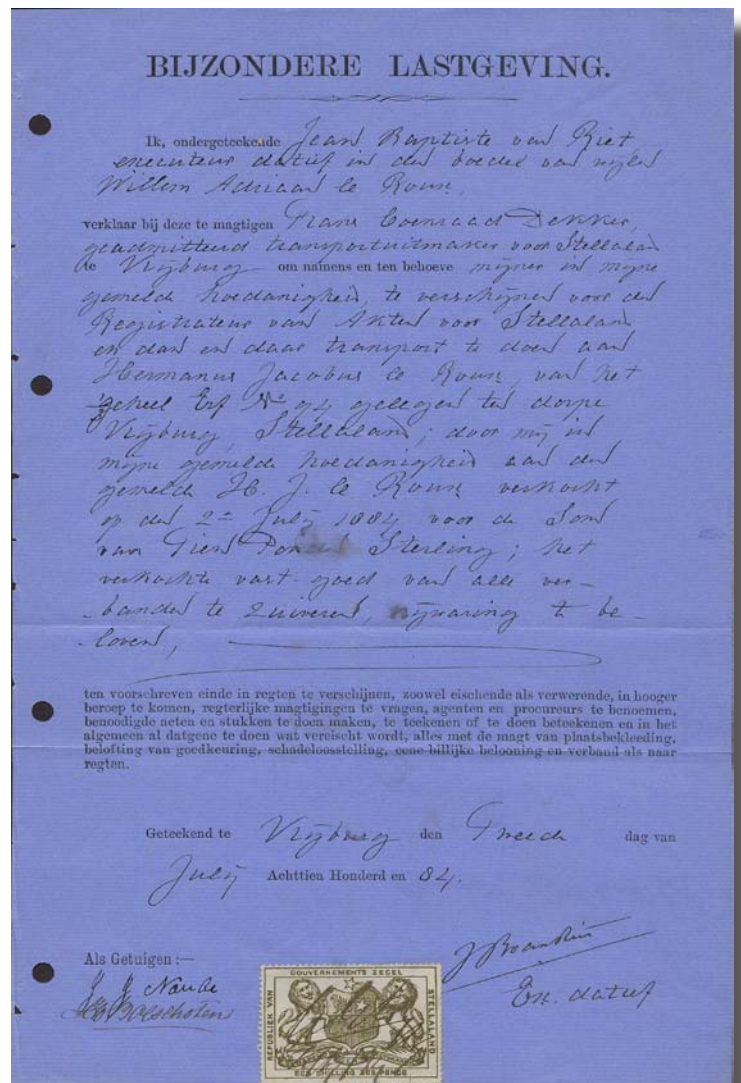 BIJZONDERE LASTGEVING.
Ik, ondergeteekende Jean Baptiste van Riet,
executeur datief in den boedel van wijlen
Willem Adriaan le Roux,
verklaar bij deze te magtigen Frans Coenraad Dekker,
geadmitteerd transportuitmaker voor Stellaland
te Vrijburg om namens en ten behoeve mijner in mijne
gemelde hoedanigheid, te verschijnen voor den
Registrateur van Akten voor Stellaland
en dan en daar transport te doen aan
Hermanus Jacobus le Roux, van het
geheel Erf No 94 gelegen ten dorpe
Vrijburg, Stellaland; door mij in
mijne gemelde hoedanigheid aan den
gemelde H. J. le Roux verkocht
op den 2n July 1884 voor de Som
van Tien Ponden Sterling; het
verkochte vast-goed van alle ver-
-banden te zuiveren, vrijwaring te be-
-loven,
ten voorschreven einde in regten te verschijnen, zoowel eischende als verwerende, in hooger
beroep te komen, regterlijke magtigingen te vragen, agenten en procureurs te benoemen,
benoodigde acten en stukken te doen maken, te teekenen of te doen beteekenen en in het
algemeen al datgene te doen wat vereischt wordt, alles met de magt van plaatsbekleeding,
belofting van goedkeuring, schadeloosstelling, eene billijke belooning en verband als naar
regten.
Geteekend te Vrijburg den Tweede dag van
July Achttien Honderd en 84.
Als Getuigen:—
J. J. Naude
Bolschoten
Ex. datief
GOUVERNEMENTS ZEGEL
REPUBLIEK VAN STELLALAND
EEN SHILLING ZES PENCE